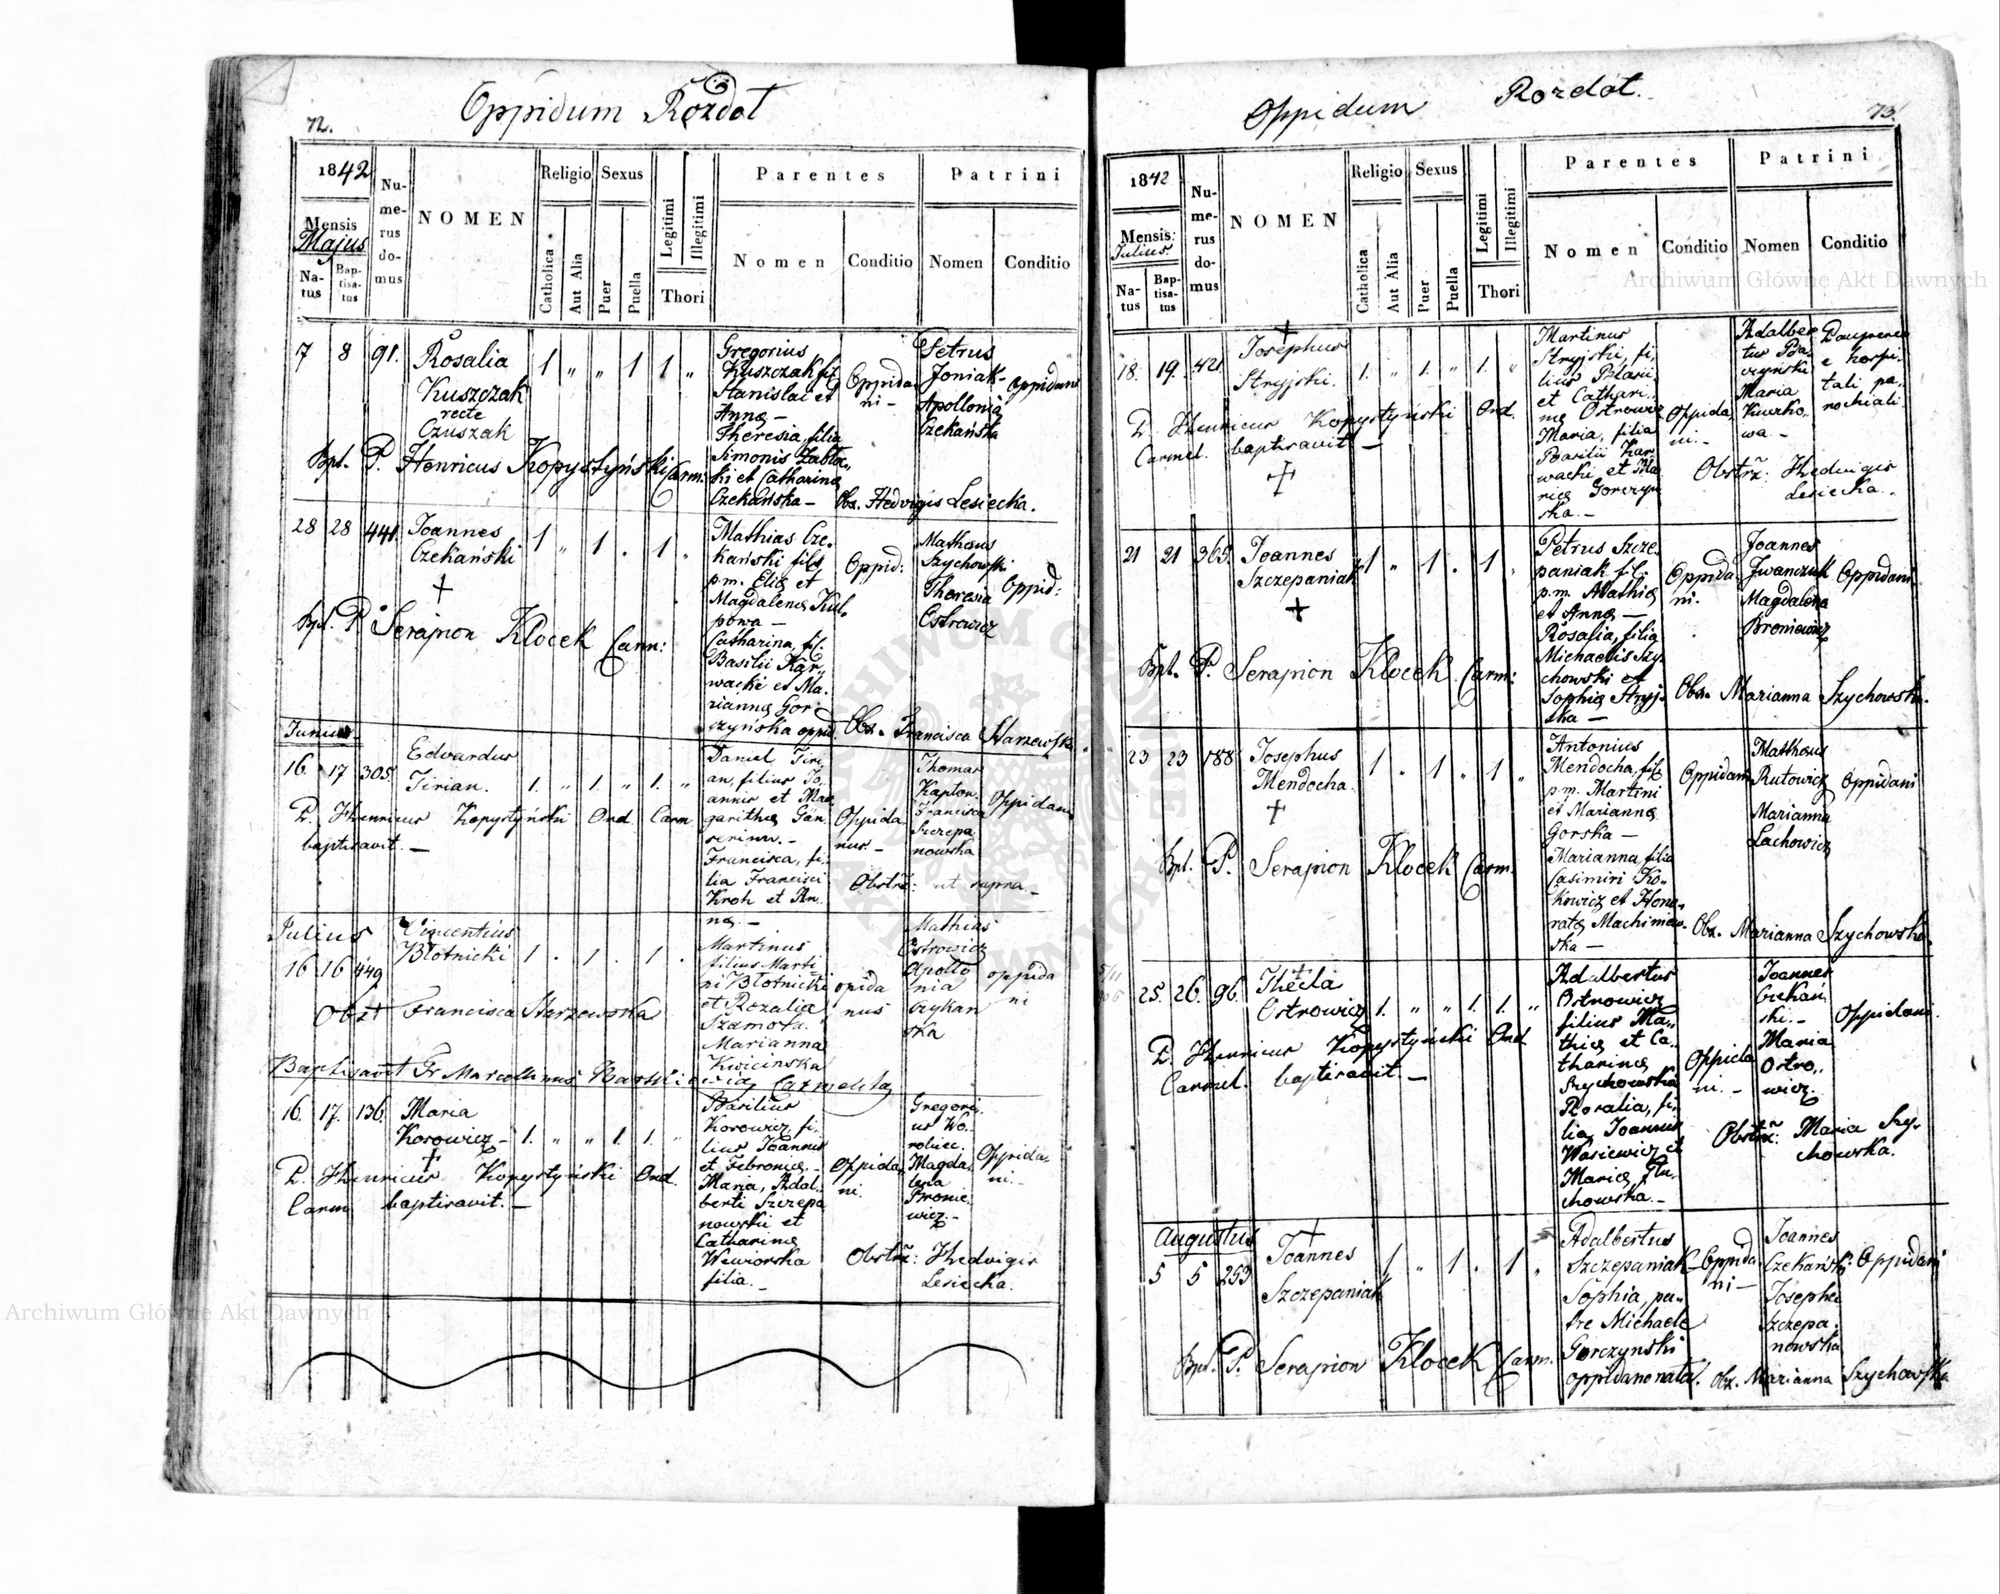 72.
Oppidum Rozdoł
1842
Mensis
Majus
Na-
tus
Bap-
tisa-
tus
Nu-
me-
rus
do-
mus
NOMEN
Religio
Catholica
Aut Alia
Sexus
Puer
Puella
Legitimi
Illegitimi
Thori
Parentes
Nomen
Conditio
Patrini
Nomen
Conditio
7 8 91.
Rosalia
Kuszczak
recte
Czuszak
1 " " 1 1 "
Gregorius
Kuszczak fil.
Stanislai et
Annæ —
Theresia, filia
Simonis Zabło„
ki et Catharinæ
Czekańska —
Oppida
ni —
Petrus
Joniak —
Apollonia
Czekańska
Oppidani
Bpt. P. Henricus Kopystyński Carm:
Obs. Hedvigis Lesiecka.
28 28 441.
Joannes
Czekański
1 " 1 . 1 "
Mathias Cze„
kański fils
p.m. Eliæ et
Magdalenæ Kul„
powa —
Catharina, fil.
Basilii Kar„
wacki et Ma„
riannæ Gor„
czyńska oppid.
Oppid:
Matheus
Szychowski
Theresia
Ostrowicz
Oppid:
Bpt. P. Serapion Klocek Carm:
Obs. Francisca Starzewska
Junius.
16. 17 305.
Edvardus
Tirian.
1. " 1. " 1. "
Daniel Tiri„
an, filius Jo„
annis et Mar„
garithæ
Francisca, fi„
lia Francisci
Kroh et An„
næ. —
Oppida
nus —
Thomas
Kapton.
Francisca
Szczepa
nowska
Oppidani
P. Henricus Kopystyński Ord. Carm
baptisavit. —
Obstr: ut supra —
Julius
16 16 449
Vincentius
Błotnicki
1 . 1 . 1 .
Martinus
filius Marti„
ni Błotnicki
et Rozalia
Szamota.
Marianna
Kwicinska
opida
nus
Mathias
Ostrowicz
Apollo
nia
Czykan
ska
oppida
ni
Obst Francisca Starzewska
Baptisavit Fr Marcellinus Carmelita
16. 17. 136.
Maria
Korowicz —
1. " " 1. 1. "
Basilius
Korowicz, fi„
lius Joannis
et Febroniæ. —
Maria, Adal„
berti Szczepa
nowski et
Catharinæ
Wewiorska
filia. —
Oppida„
ni.
Gregori„
us Wo„
robiec.
Magda„
lena
Bronie„
wicz. —
Oppida„
ni. —
P. Henricus Kopystyński Ord.
Carm baptisavit. —
Obstr: Hedvigis
Lesiecka.
Oppidum Rozdoł.
73.
1842
Mensis:
Julius.
Na-
tus
Bap-
tisa-
tus
Nu-
me-
rus
do-
mus
NOMEN
Religio
Catholica
Aut Alia
Sexus
Puer
Puella
Legitimi
Illegitimi
Thori
Parentes
Nomen
Conditio
Patrini
Nomen
Conditio
18. 19. 421.
Josephus
Stryjski.
1. " 1. " 1. "
Martinus
Stryjski, fi„
lius Blasii
et Cathari„
næ Ostrowicz
Maria, filia
Basilii Kar„
wacki et Ma
riæ Gorczyn
ska. —
Oppida„
ni. —
Adalber
tus
czyński
Maria
Kuczko„
wa. —
Pauperes
e hospi„
tali pa„
rochiali
P. Henricus Kopystyński Ord.
Carmel. baptisavit —
Obstr: Hedvigis
Lesiecka.
21 21 365.
Joannes
Szczepaniak
1 " 1 . 1 "
Petrus Szcze„
paniak fil.
p.m. Mathiæ
et Annæ —
Rosalia, filia
Michaelis Szy„
chowski et
Sophiæ Stryj„
ska —
Oppida„
ni.
Joannes
Iwanczuk
Magdalena
Broniewicz
Oppidani
Bpt. P. Serapion Klocek Carm:
Obs. Marianna Szychowska.
23 23 188
Josephus
Mendocha.
1 " 1 " 1 "
Antonius
Mendocha, fil
p.m. Martini
et Mariannæ
Gorska —
Marianna, filia
Casimiri Ko„
kowicz et Hono„
ratæ Machniew„
ska —
Oppidani
Matheus
Rutowicz
Marianna
Lachowicz
Oppidani
Bpt. P. Serapion Klocek Carm.
Obs. Marianna Szychowska.
25. 26. 96.
Thecla
Ostrowicz
1. " " 1. 1. "
Adalbertus
Ostrowicz
filius Ma„
thiæ et Ca„
tharinæ
Szychowska
Rosalia, fi„
lia Joannis
Wasiewicz et
Mariæ Glu„
chowska. —
Oppida
ni. —
Joannes
Czekań
ski. —
Maria
Ostro„
wicz.
Oppidani.
P. Henricus Kopystyński Ord
Carmel. baptisavit. —
Obstr: Maria Szy„
chowska.
Augustus
5 5 253
Joannes
Szczepaniak
1 " 1 . 1 "
Adalbertus
Szczepaniak —
Sophia, pa„
tre Michaele
Gorczynski
oppidano nata.
Oppida„
ni —
Joannes
Czekański
Josepha
Szczepa„
nowska
Oppidani
Bpt. P. Serapion Klocek Carm.
Obs. Marianna Szychowska
Archiwum Główne Akt Dawnych
Archiwum Główne Akt Dawnych